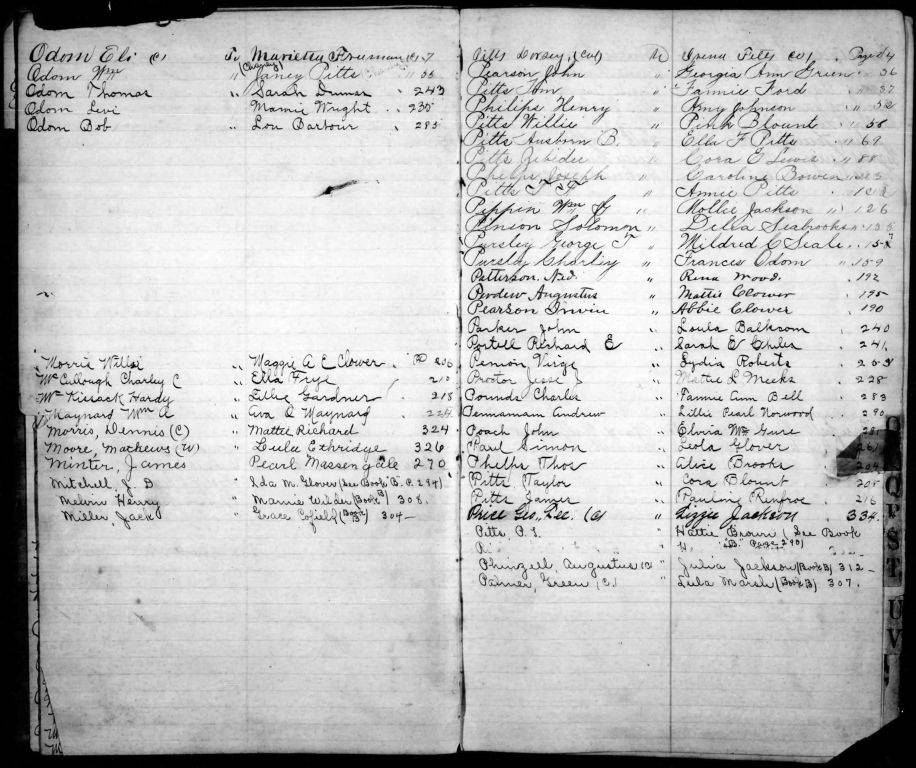 Odom Eli (c) To Marietta Freeman (c) 7
Odom Wm " Janey Pitts " 56
Odom Thomas " Sarah Dumas " 243
Odom Levi " Mamie Wright " 235
Odom Bob " Lou Barbour " 285
Morris Willie " Maggie A E Clover 206
McCullough Charley C " Ella Frye 210
McKissack Hardy " Lillie Gardner " 218
Maynard Wm A " Ava O Maynard " 224
Morris, Dennis (C) " Mattie Richard 324
Moore, Mathews (W) " Lula Ethridge 326
Minter, James " Pearl Massengale 270
Mitchell, J. D " Ida M. Glover (See Book B. P. 284)
Melvin Henry " Mamie Wilder (Book B) 308.
Miller, Jack " Grace Cofield (Book B) 304—
Pitts Dorsey, (Col) To Pitts Col Page
Pearson John " Georgia Ann Green " 36
Pitts Tom " Fannie Ford " 37
Philips Henry " Amy Johnson " 52
Pitts Willie " Pink Blount " 58
Pitts Ausborn B. " Ella F Pitts " 69
Pitts Zebidee " Cora E Lewis " 88
Phelps Joseph " Caroline Bowen
Pitts T F " Annie Pitts
Pippin Wm " Mollie Jackson " 126
Pinson Solomon " Delia Seabrooks " 135
Pursley George T " Mildred C Seale
Pursley Charley " Frances Odom " 159
Patterson. Ned. " Rena Wood. " 192
Perdew Augustus " Mattie Clower " 195
Pearson Irwin " Abbie Clower " 190
Parker John " Loula Balkcom " 240
Portell Richard E " Sarah E " 241
Penson Virge " Lydia Roberts " 203
Proctor Jesse J " Mattie L Meeks " 228
Pounds Charles " Fannie Ann Bell " 283
Pennamam Andrew " Lillie Pearl Norwood " 290
Poach John " Elvia McGure
Paul Simon " Leola Glover 261
Phelps Thos " Alice Brooks 204
Pitts Taylor " Cora Blount " 208
Pitts Sanger " Pauline Renfroe " 216
Price Geo. Lee. (c) " Lizzie Jackson 334.
Pitts, P. S. " Hattie Brown (See Book
"B." Page 290)
Phinzell, Augustus (C) " Julia Jackson (Book B) 312—
Palmer, Green (C) " Lula Marsh (Book B) 307.
Q
P
S
T
U
V